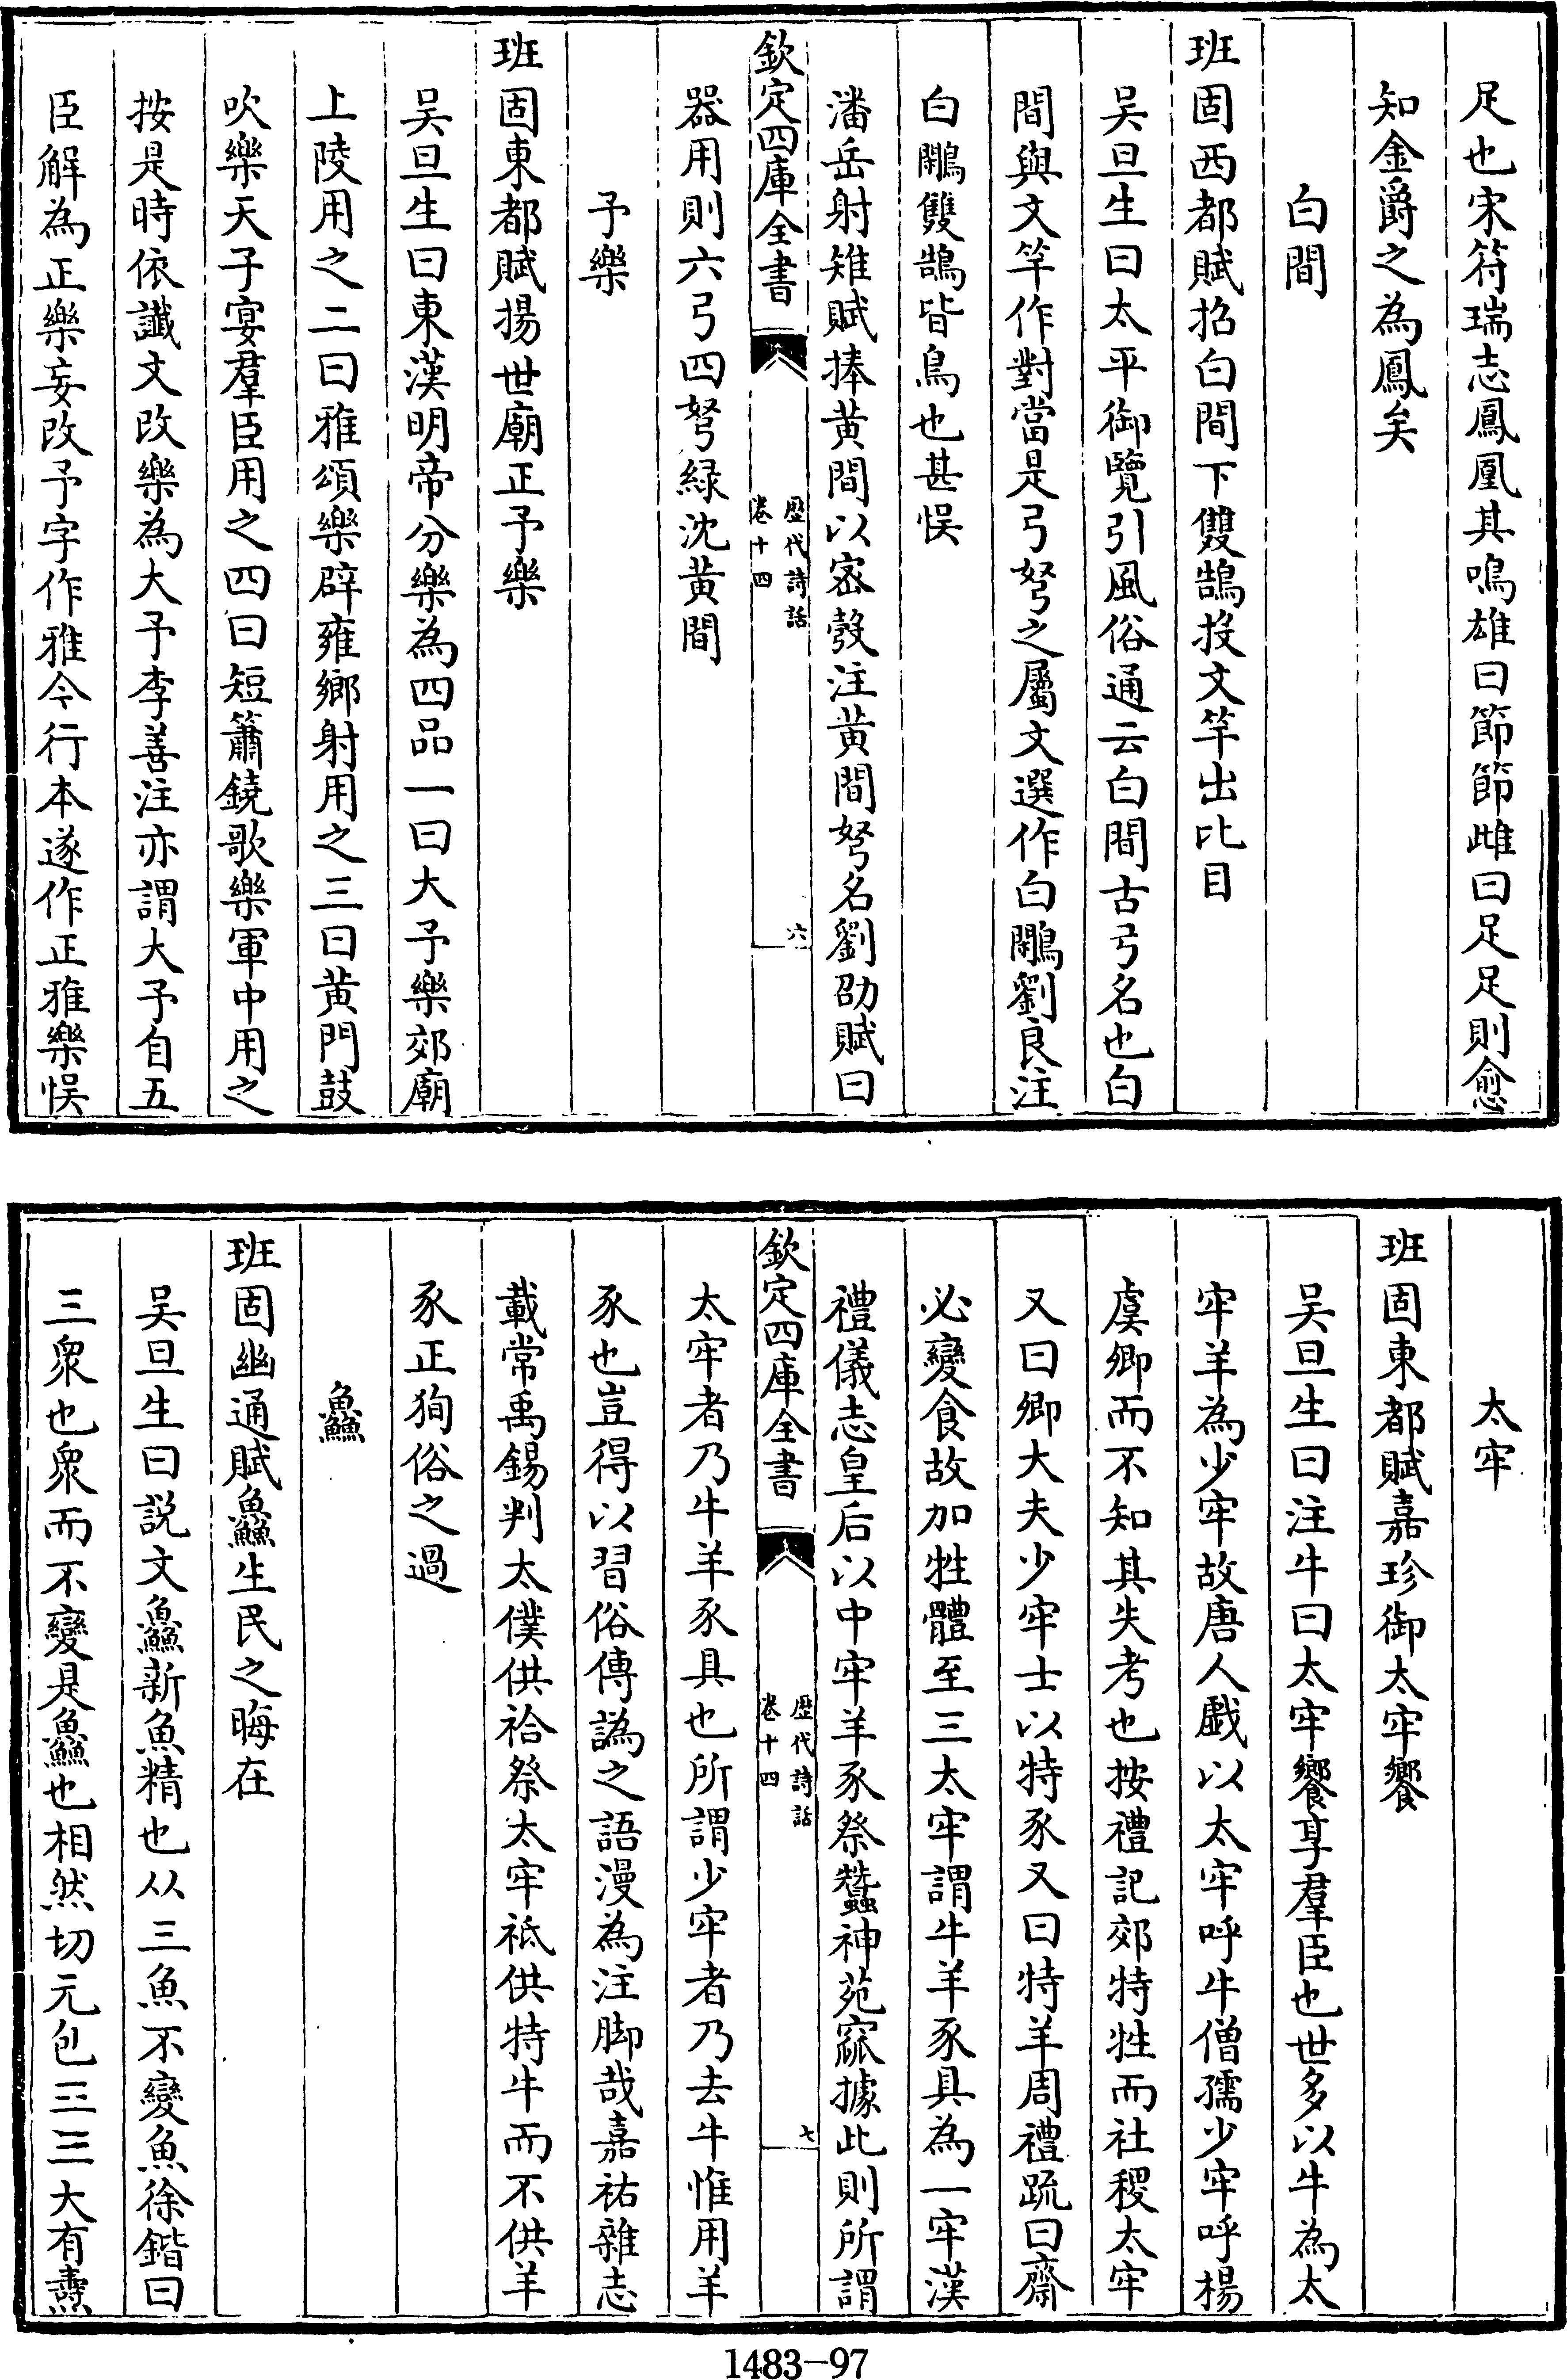 足也宋符瑞志鳳凰其鳴雄曰節節雌曰足足則愈
知金爵之為鳳矣
白間
班固西都賦招白間下雙鵠投文竿出比目
吴旦生曰太平御覽引風俗通云白間古弓名也白
間與文竿作對當是弓弩之屬文選作白鷳劉良注
白鷳雙鵠皆鳥也甚悮
潘岳射雉賦捧黄間以密彀注黄間弩名劉劭賦曰
欽定四庫全書
歴代詩話
卷十四
六
器用則六弓四弩緑沈黄間
予樂
班固東都賦揚世廟正予樂
吴旦生曰東漢明帝分樂為四品一曰大予樂郊廟
上陵用之二曰雅頌樂辟雍鄉射用之三曰黄門鼓
吹樂天子宴羣臣用之四曰短簫鐃歌樂軍中用之
按是時依讖文改樂為大予李善注亦謂大予自五
臣解為正樂妄改予字作雅今行本遂作正雅樂悮
太牢
班固東都賦嘉珍御太牢饗
吴旦生曰注牛曰太牢饗享羣臣也世多以牛為太
牢羊為少牢故唐人戲以太牢呼牛僧孺少牢呼楊
虞卿而不知其失考也按禮記郊特牲而社稷太牢
又曰卿大夫少牢士以特豕又曰特羊周禮疏曰齋
必變食故加牲體至三太牢謂牛羊豕具為一牢漢
禮儀志皇后以中牢羊豕祭蠶神苑窳據此則所謂
欽定四庫全書
歴代詩話
卷十四
七
太牢者乃牛羊豕具也所謂少牢者乃去牛惟用羊
豕也豈得以習俗傳譌之語漫為注脚哉嘉祐雜志
載常禹錫判太僕供祫祭太牢祗供特牛而不供羊
豕正狥俗之過
鱻
班固幽通賦鱻生民之晦在
吴旦生曰説文鱻新魚精也从三魚不變魚徐鍇曰
三衆也衆而不變是鱻也相然切元包三三大有燾
1483-97